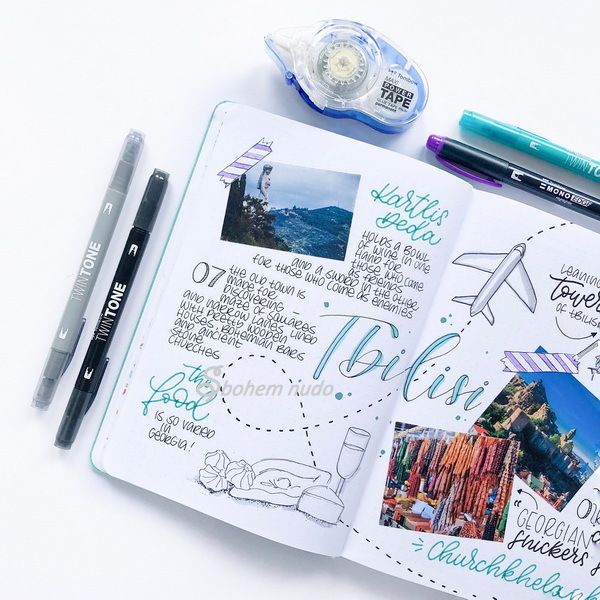 Tombow
MAXI
POWER
TAPE
permanent
TWINTONE
TWINTONE
TWINTONE
MONO
Kartlis
Deda
HOLDS A BOWL
OF WINE IN ONE
HAND FOR
THOSE WHO COME
AS FRIENDS
AND A SWORD IN THE OTHER
FOR THOSE WHO COME AS ENEMIES
07
THE OLD TOWN IS
MADE FOR
DISCOVERING –
MAZE OF SQUARES
AND NARROW LANES LINED
WITH PRETTY WOODEN
HOUSES, BOHEMIAN BARS
AND ANCIENT
STONE
CHURCHES
Tbilisi
the
food
IS SO VARIED
IN
GEORGIA!
bohem nudo
LEANING
Tower
OF TBILIS
"GEORGIAN
Snickers
Churchkhela